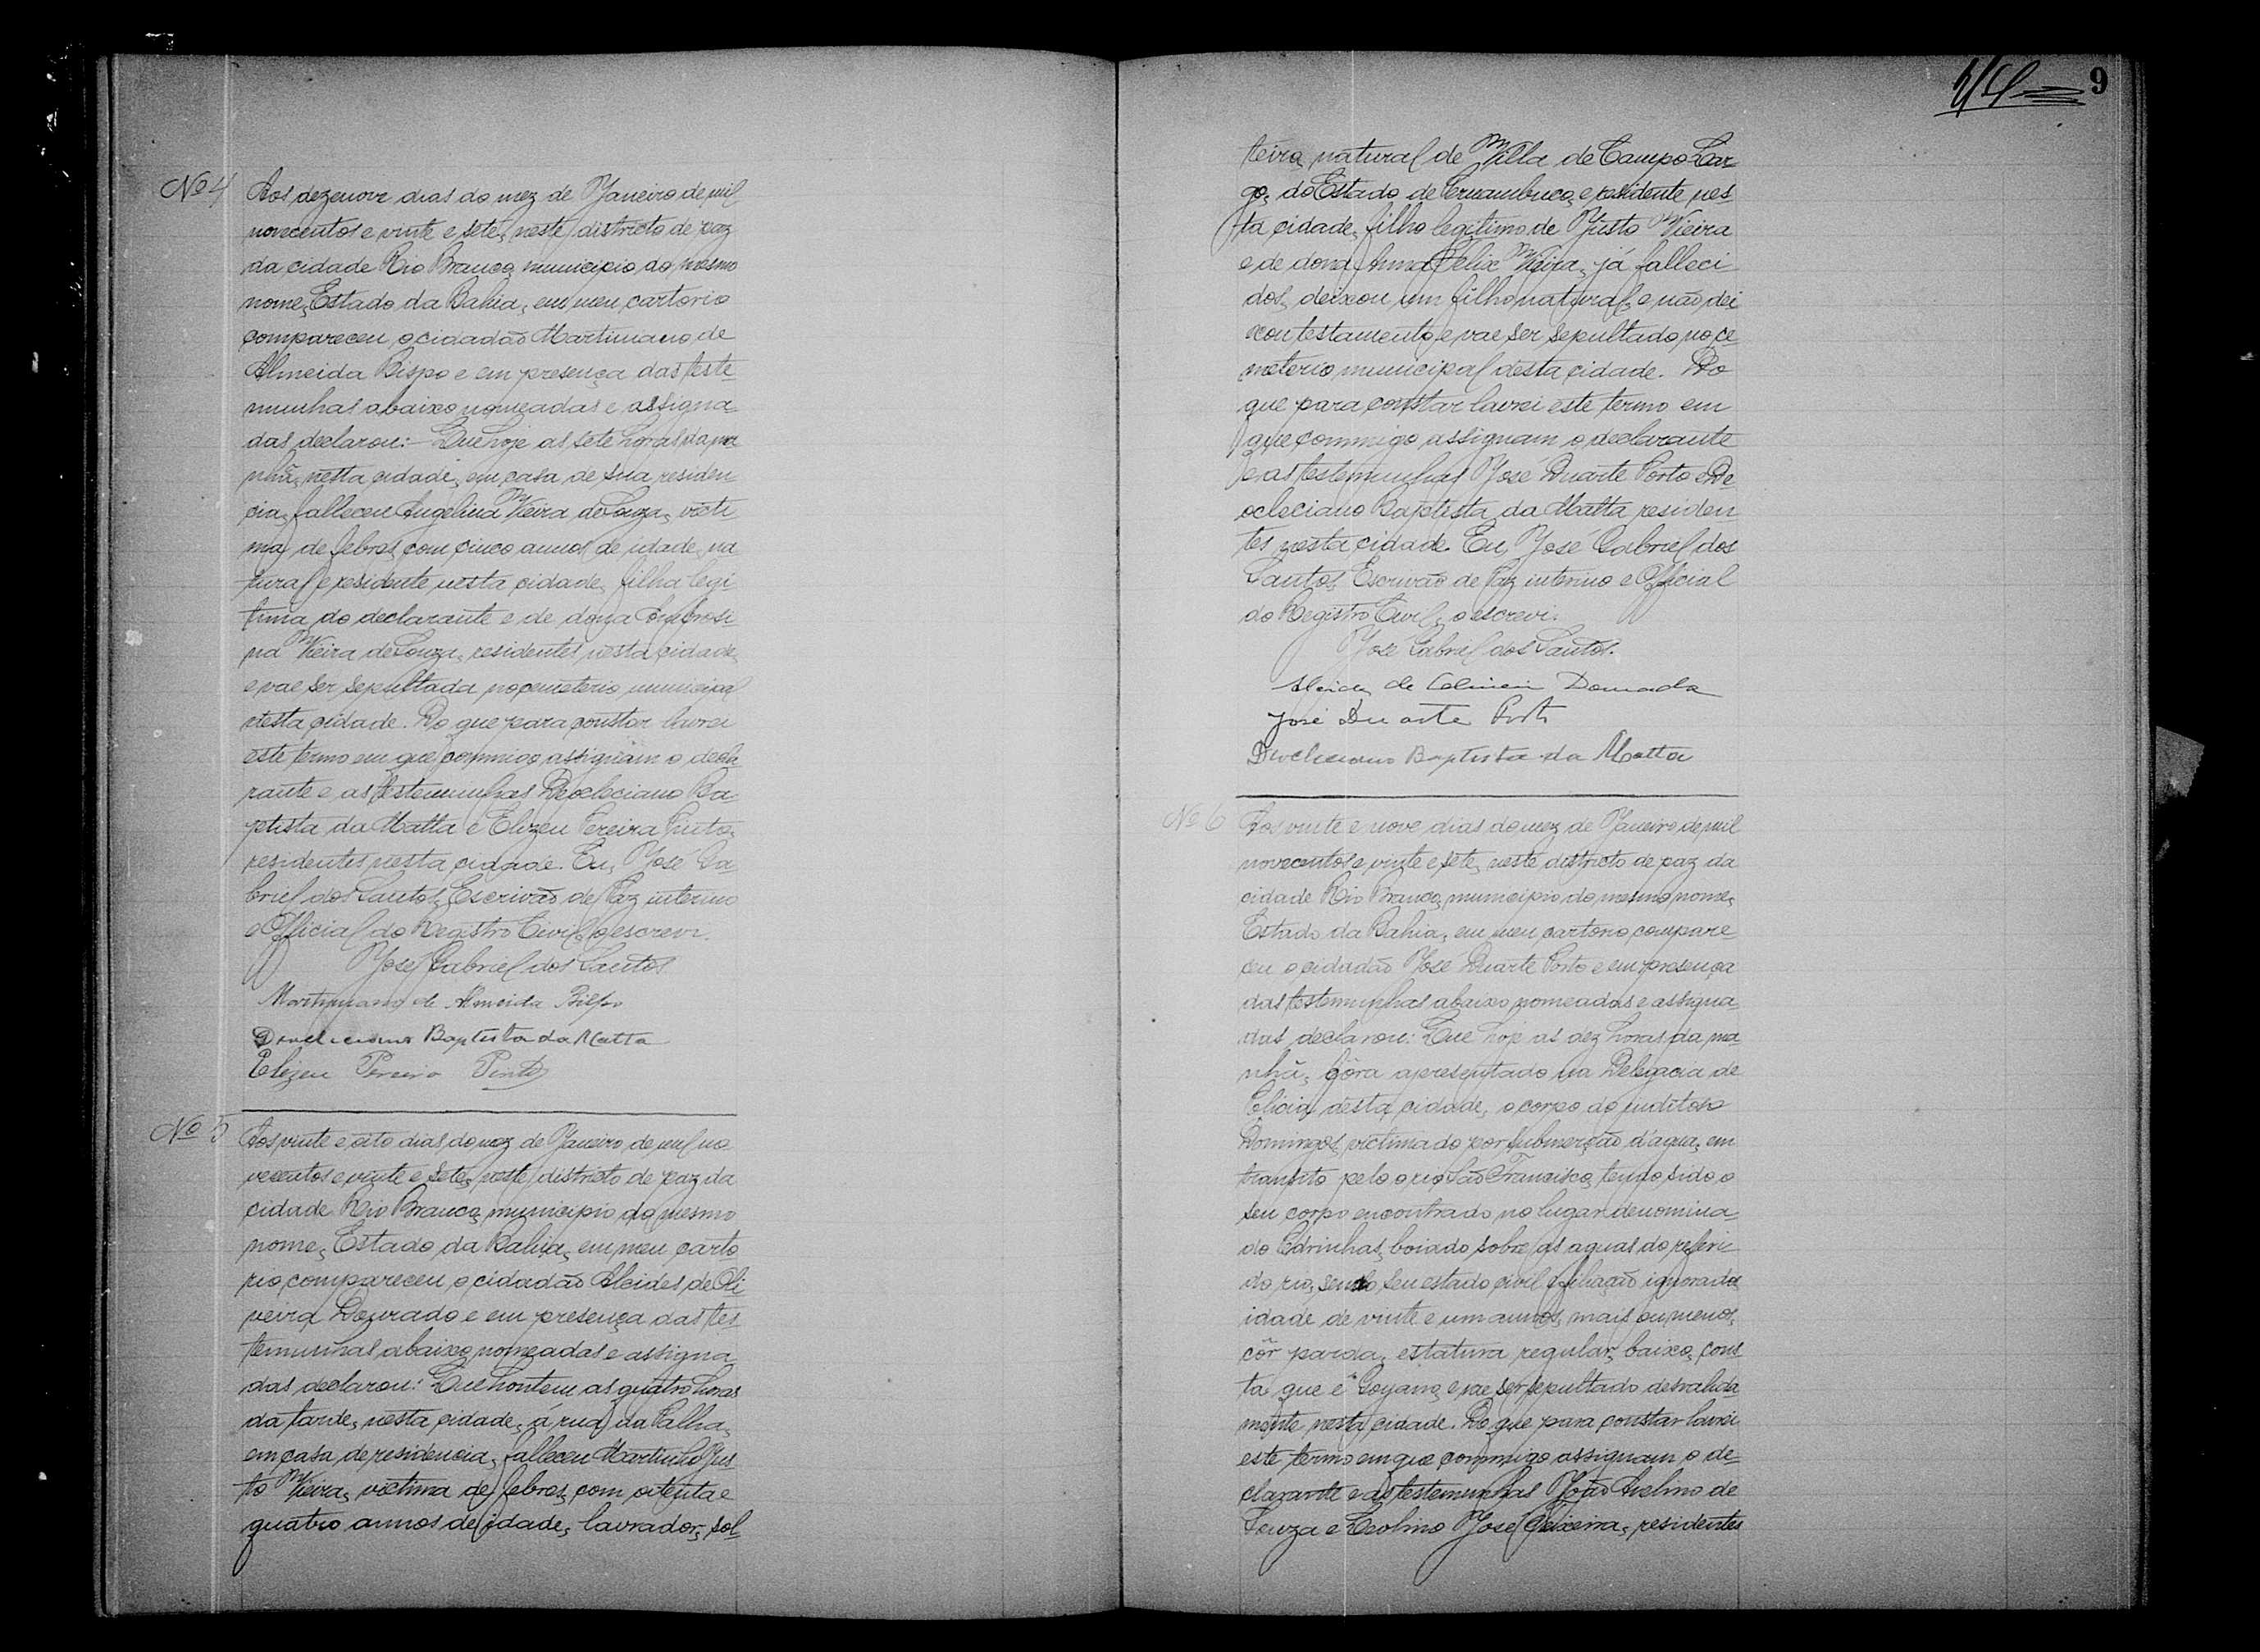 Nº 4
Aos dezenove dias do mez de Janeiro de mil
novecentos e vinte e sete, neste districto de paz
da cidade Rio Branco, municipio do mesmo
nome, Estado da Bahia, em meu cartorio
compareceu o cidadão Martiniano de
Almeida Bispo e em presença das teste-
munhas abaixo nomeadas e assigna-
das declarou: Que hoje as sete horas da ma
nhã, nesta cidade, em casa de sua residen
cia, falleceu Angelina Vieira de Souza, victi
ma de febres, com cinco annos de idade, na
tural e residente nesta cidade, filha legi-
tima do declarante e de dona Ambrosi-
na Vieira de Souza, residentes nesta cidade,
e vae ser sepultada no cemeterio municipal
desta cidade. Do que para constar lavrei
este termo em que commigo assignam o decla
rante e as testemunhas Deocleciano Ba-
ptista da Matta e Elizeu Pereira Pinto,
residentes nesta cidade. Eu, José Ga-
briel dos Santos, Escrivão de Paz interino
e Official do Registro Civil, o escrevi.
José Gabriel dos Santos
Martiniano de Almeida Bispo
Deocleciano Baptista da Matta
Elizeu Pereira Pinto
Nº 5
Aos vinte e oito dias do mez de Janeiro, de mil no
vecentos e vinte e sete, neste districto de paz da
cidade Rio Branco, municipio do mesmo
nome, Estado da Bahia, em meu carto
rio, compareceu o cidadão Alcides de Oli
veira Dourado e em presença das tes-
temunhas abaixo nomeadas e assigna
das declarou: Que hontem as quatro horas
da tarde, nesta cidade, á rua da Palha,
em casa de residencia, falleceu Martinho Jus
to Vieira, victima de febres, com oitenta e
quatro annos de idade, lavrador, sol-
9
teiro, natural de Villa de Campo Lar-
go, do Estado de Pernambuco, e residente nes
ta cidade, filho legitimo de Justo Vieira
e de dona Anna Felix Vieira, já falleci
dos, deixou um filho natural, e não dei
xou testamento, e vae ser sepultado no ce-
meterio municipal desta cidade. Do
que para constar lavrei este termo em
que commigo assignam o declarante
e as testemunhas José Duarte Porto e De-
ocleciano Baptista da Matta residen
tes nesta cidade. Eu, José Gabriel dos
Santos, Escrivão de Paz interino e Official
do Registro Civil, o escrevi.
José Gabriel dos Santos.
Alcides de Oliveira Dourado
José Duarte Porto
Deocleciano Baptista da Matta
Nº 6
Aos vinte e nove dias do mez de Janeiro de mil
novecentos e vinte e sete, neste districto de paz da
cidade Rio Branco, municipio do mesmo nome,
Estado da Bahia, em meu cartorio compare-
ceu o cidadão José Duarte Porto e em presença
das testemunhas abaixo nomeadas e assigna-
das declarou: Que hoje as dez horas da ma
nhã, fôra apresentado na Delegacia de
Policia desta cidade, o corpo do inditoso
Domingos, victimado por submerção d'agua, em
transito pelo o rio São Francisco, tendo sido o
seu corpo encontrado no lugar denomina-
do Pedrinhas, boiado sobre as aguas do referi-
do rio, sendo seu estado civil e filiação ignorada
idade de vinte e um annos, mais ou menos,
côr parda, estatura regular, baixo, cons
ta que é Goyano, e vae ser sepultado desvalida
mente nesta cidade. Do que para constar lavrei
este termo em que commigo assignam o de-
clarante e as testemunhas João Avelino de
Souza e Leolino José Teixeira, residentes